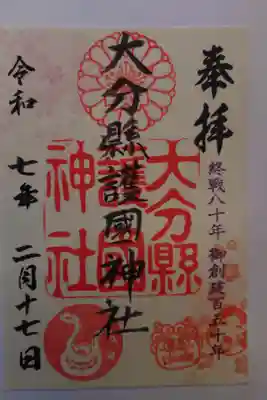 奉拝
終戦八十年 御創建百五十年
大分縣護國神社
大分縣
護國
神社
令和七年 二月十七日